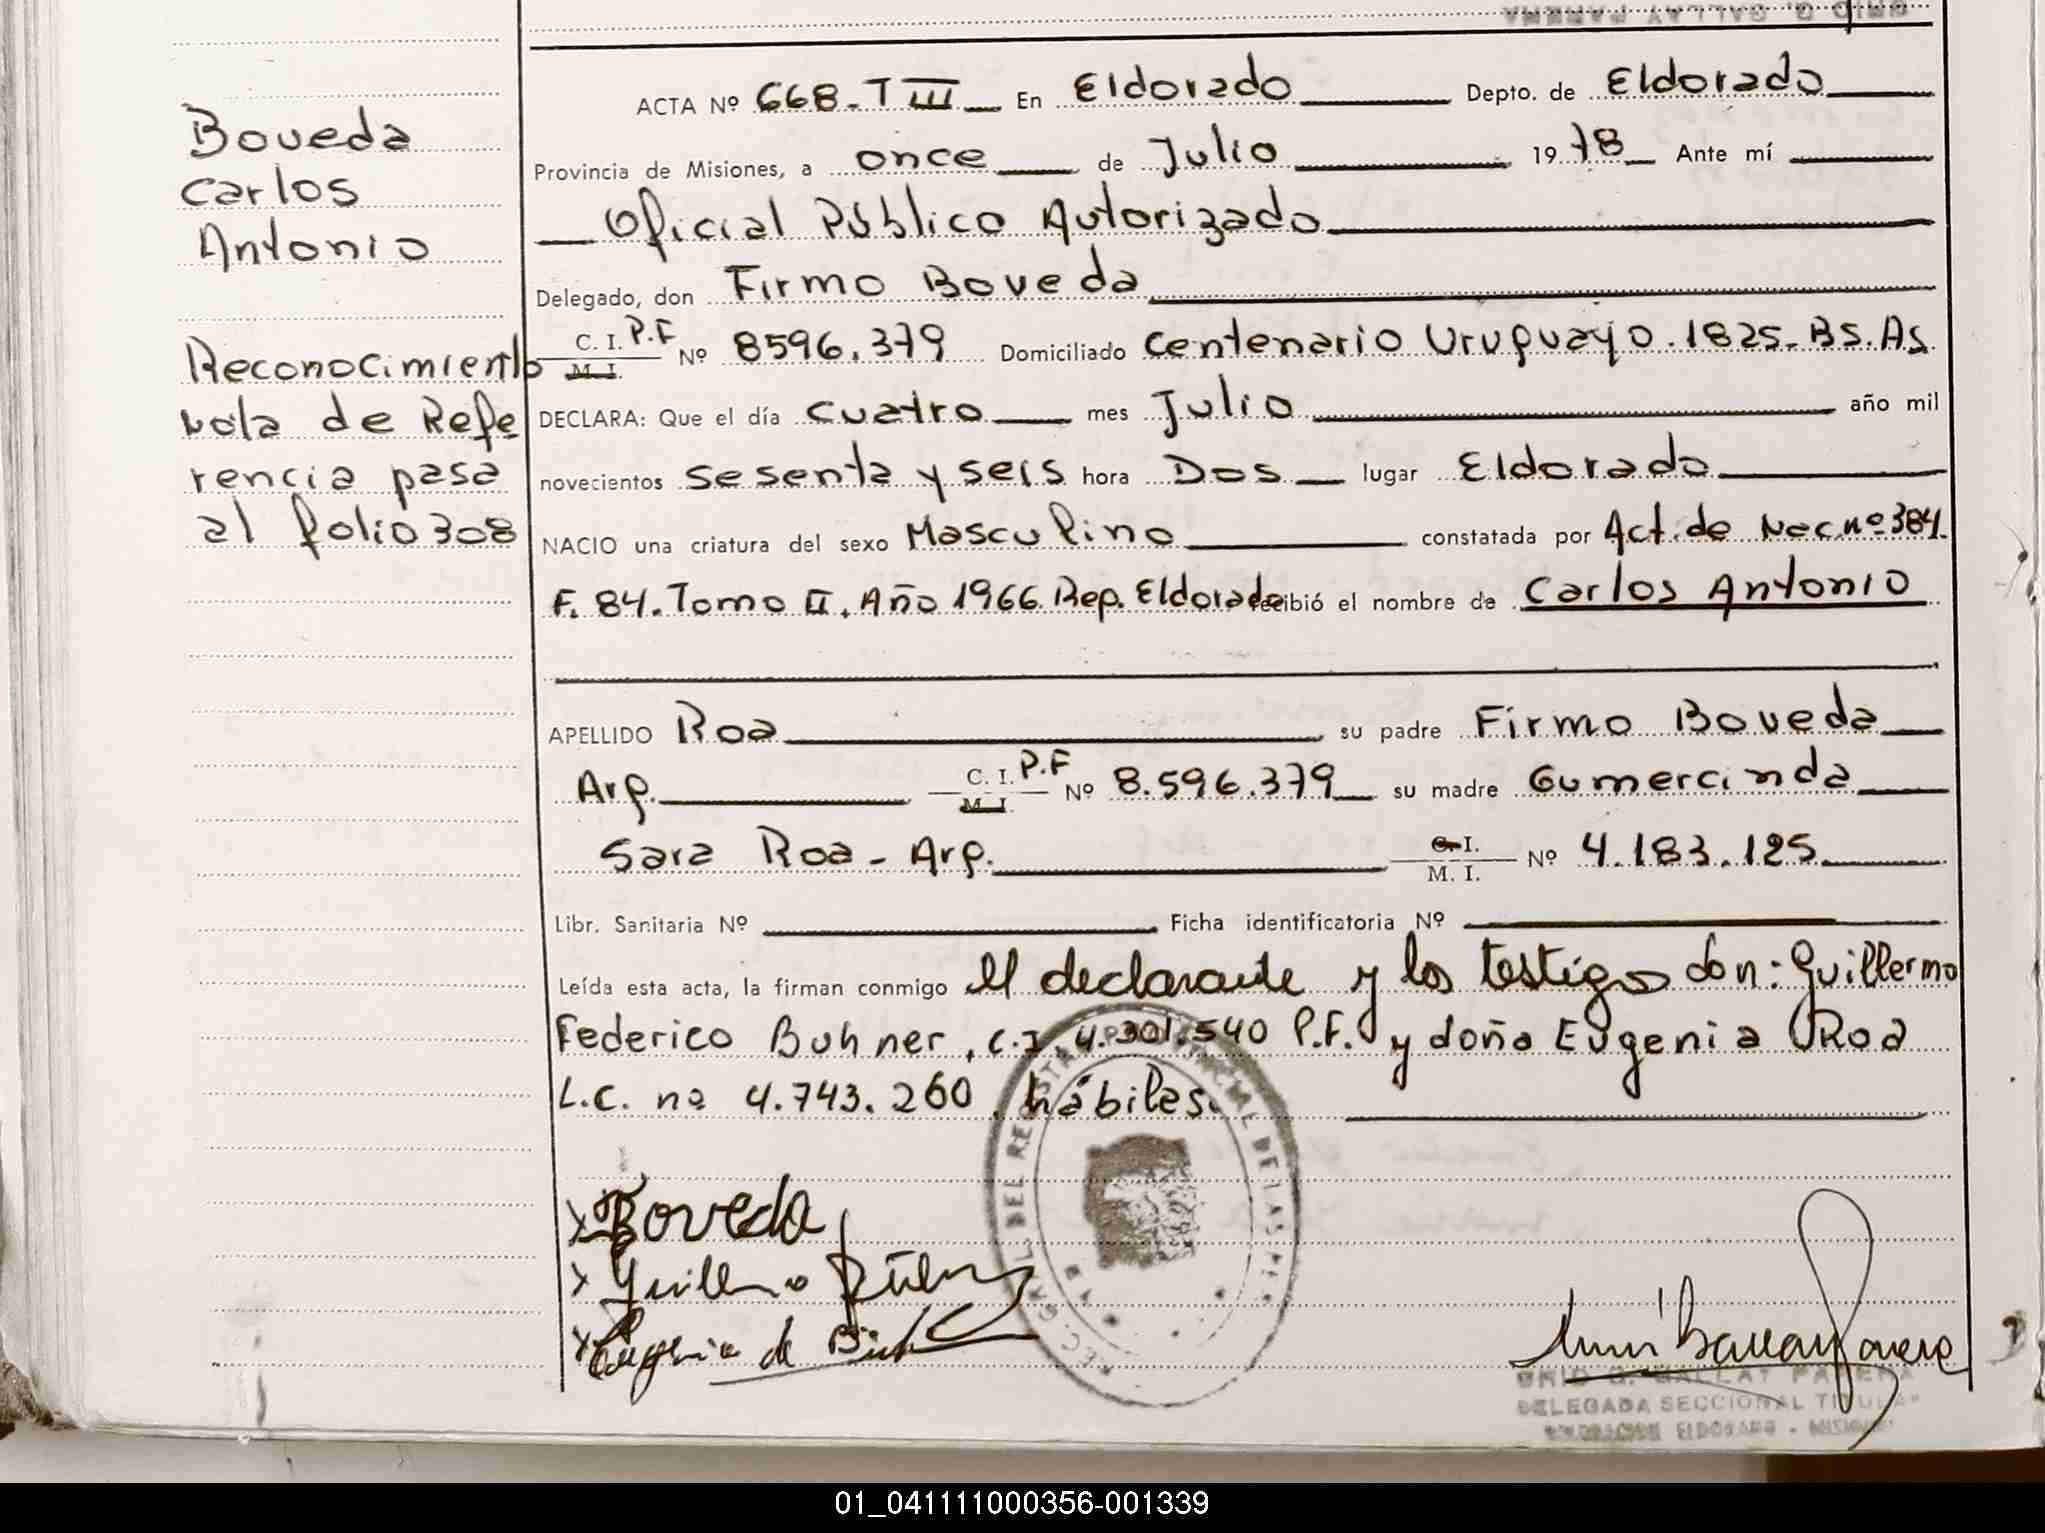 Boveda
Carlos
Antonio
Reconocimiento
Nota de Refe
rencia pasa
al folio 308
ACTA Nº 668. T III En Eldorado Depto. de Eldorado
Provincia de Misiones, a once de Julio 1978 Ante mí
Oficial Público Autorizado
Delegado, don Firmo Boveda
C. I. P.F
M. I. Nº 8596.379 Domiciliado Centenario Uruguayo. 1825. Bs. As.
DECLARA: Que el día cuatro mes Julio año mil
novecientos sesenta y seis hora Dos lugar Eldorado
NACIO una criatura del sexo Masculino constatada por Act. de Nac. nº 384.
F. 84. Tomo II. Año 1966. Rep. Eldorado recibió el nombre de Carlos Antonio
APELLIDO Roa su padre Firmo Boveda
Arg. C. I. P.F
M. I. Nº 8.596.379 su madre Gumercinda
Sara Roa - Arg. C. I.
M. I. Nº 4.183.125
Libr. Sanitaria Nº Ficha identificatoria Nº
Leída esta acta, la firman conmigo el declarante y los testigos don: Guillermo
Federico Buhner, C.I. 4.301.540 P.F. y doña Eugenia Roa
L.C. nº 4.743.260, hábiles.
Boveda
Guillermo
Eugenia de
DELEGADA SECCIONAL TITULAR
ELDORADO - MISIONES
01_041111000356-001339